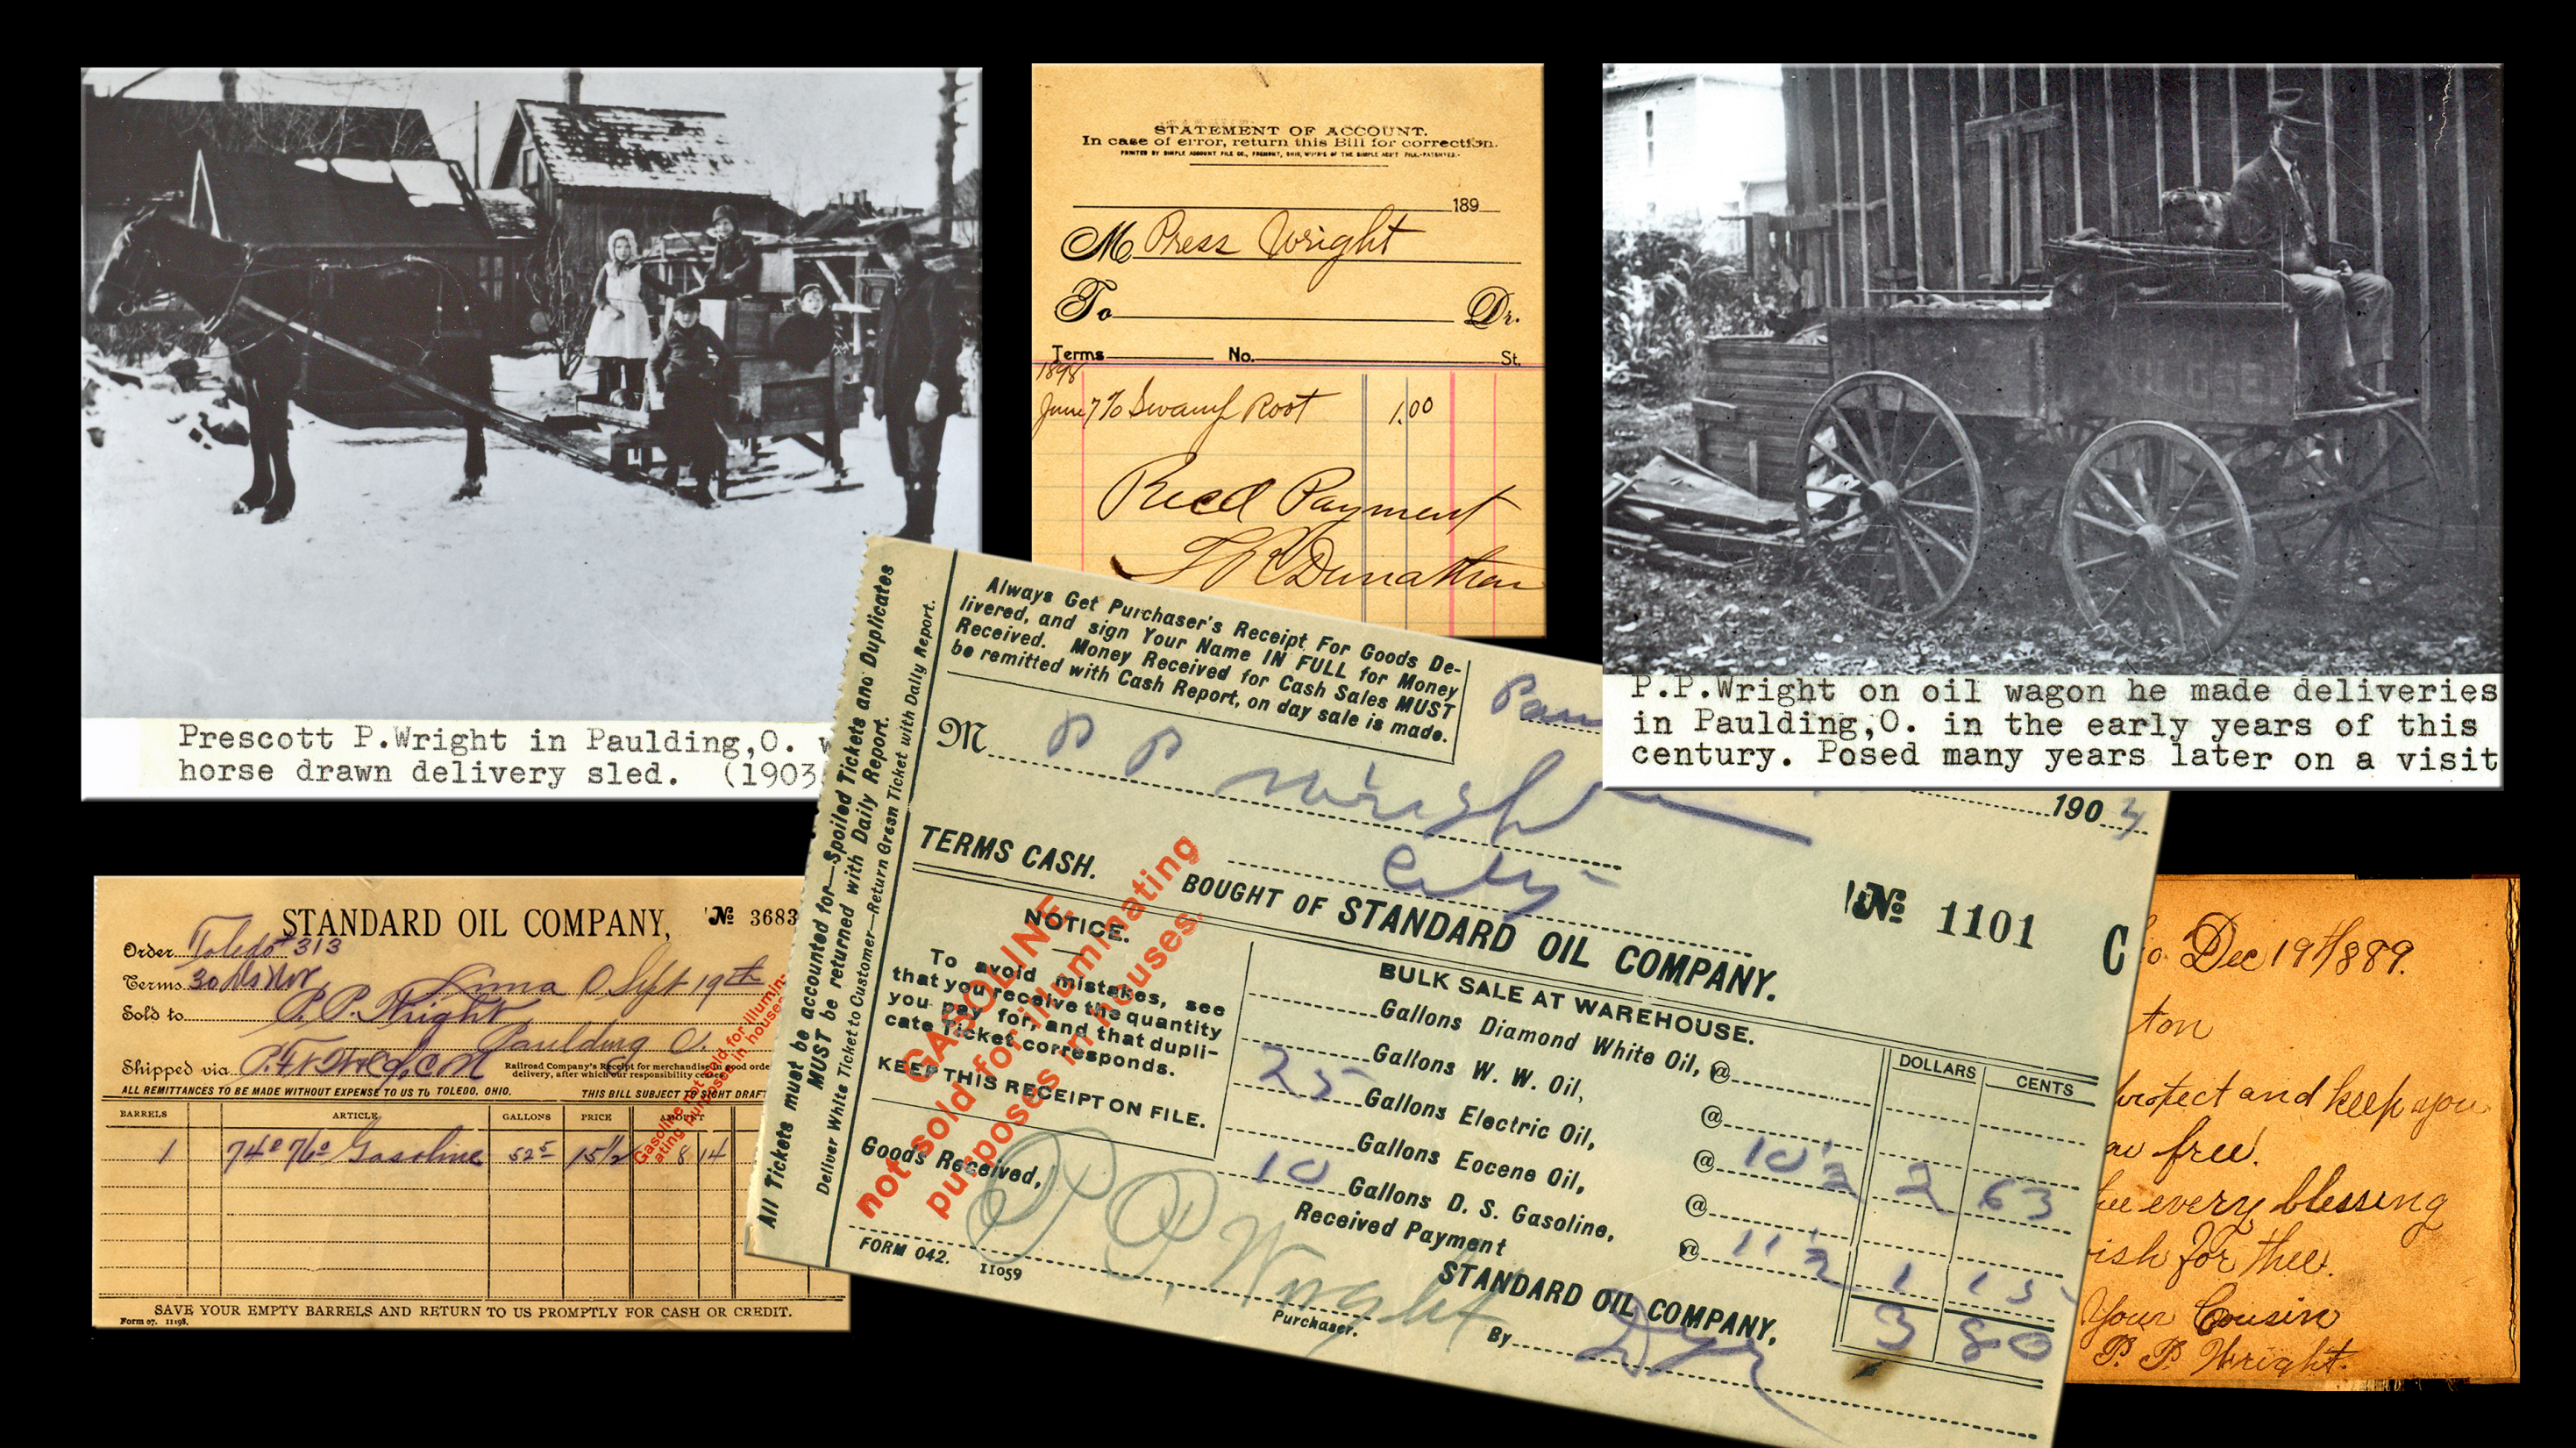 Prescott P.Wright in Paulding,O.
horse drawn delivery sled. (1903
STATEMENT OF ACCOUNT.
In case of error, return this Bill for correction.
PRINTED BY SIMPLE ACCOUNT FILE CO., FREMONT, OHIO,
189
M Press Wright
To Dr.
Terms No. St.
1898
June 7 To Swamp Root 1.00
Recd Payment
P.P.Wright on oil wagon he made deliveries
in Paulding,O. in the early years of this
century. Posed many years later on a visit
STANDARD OIL COMPANY, No 3683
Order Toledo 313
Terms 30 ds Lima O Sept 19th
Sold to P. P. Wright
Paulding O.
Shipped via
Railroad Company's Receipt for merchandise in good orde
delivery, after which our responsibility
ALL REMITTANCES TO BE MADE WITHOUT EXPENSE TO US TO TOLEDO, OHIO. THIS BILL SUBJECT TO SIGHT DRAF
BARRELS ARTICLE GALLONS PRICE AMOUNT
1 74° 76° Gasoline 52 5 15 1/2 8 14
Gasoline not sold for illumin
ating purposes in houses
SAVE YOUR EMPTY BARRELS AND RETURN TO US PROMPTLY FOR CASH OR CREDIT.
Form 07. 11198.
All Tickets must be accounted for—Spoiled Tickets and Duplicates
MUST be returned with Daily Report.
Deliver White Ticket to Customer—Return Green Ticket with Daily Report.
Always Get Purchaser's Receipt For Goods De-
livered, and sign Your Name IN FULL for Money
Received. Money Received for Cash Sales MUST
be remitted with Cash Report, on day sale is made.
Pau
190
M P P Wright
City
TERMS CASH.
No 1101 C
BOUGHT OF STANDARD OIL COMPANY.
BULK SALE AT WAREHOUSE.
DOLLARS CENTS
NOTICE.
To avoid mistakes, see
that you receive the quantity
you pay for, and that dupli-
cate Ticket corresponds.
KEEP THIS RECEIPT ON FILE.
GASOLINE
not sold for illuminating
purposes in houses.
Gallons Diamond White Oil, @
Gallons W. W. Oil, @
25 Gallons Electric Oil, @ 10 1/2 2 63
Gallons Eocene Oil, @
10 Gallons D. S. Gasoline, @ 11 1/2 1 15
3 80
Goods Received,
P P Wright
Purchaser.
Received Payment
STANDARD OIL COMPANY,
By
FORM 042. 11059
o. Dec 19th 1889.
ton
protect and keep you
free.
every blessing
ish for thee.
Your Cousin
P. P. Wright.